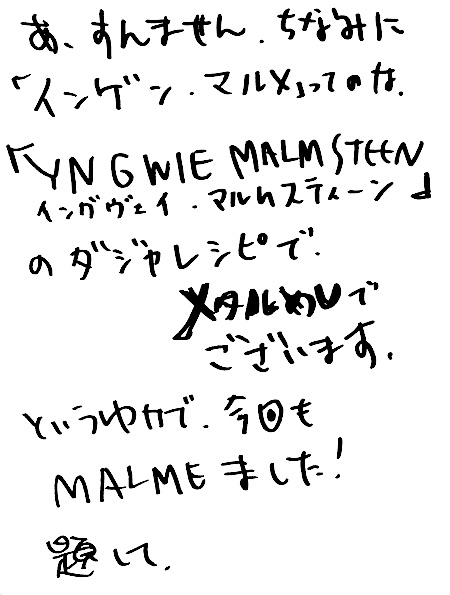 あ、すんません。ちなみに
「インゲン・マルメ」ってのは、
「YNGWIE MALMSTEEN
イングヴェイ・マルムスティーン」
のダジャレシピで、
メタルめしで
ございます。
というわけで、今回も
MALMEました!
題して、